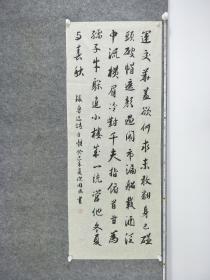 運交華蓋欲何求未敢翻身已碰
頭破帽遮颜過闹市漏船載酒泛
中流横眉冷對千夫指俯首甘為
孺子牛躲進小樓成一统管他冬夏
与春秋
魯迅詩自嘲 年夏 書